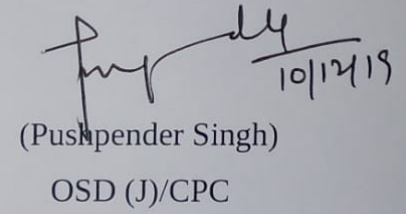 10/12/19
(Pushpender Singh)
OSD (J)/CPC